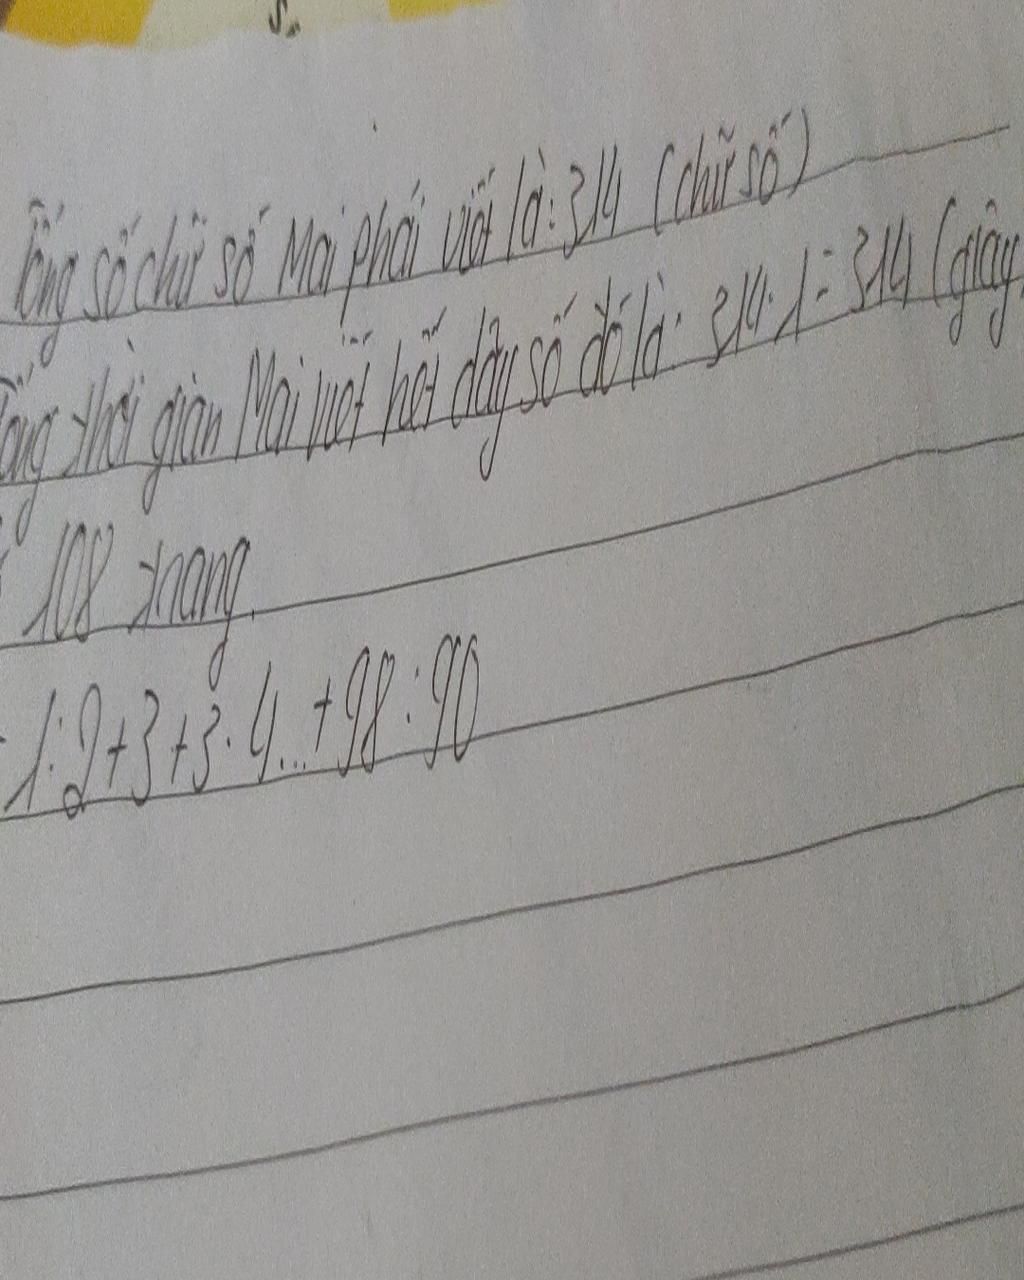 Tổng số chữ số Mai phải viết là: 314 (chữ số)
Tổng thời gian Mai viết hết dãy số đó là: 314.1=314 (giây
108 trang
1.2+3+3.4...+98.90